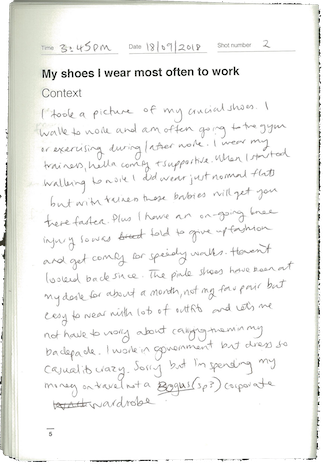 Time 3:45PM Date 18/09/2018 Shot number 2
My shoes I wear most often to work
Context
I took a picture of my crucial shoes. I
walk to work and am often going to the gym
or exercising during/after work. I wear my
trainers, hella comfy + supportive. When I started
walking to work I did wear just normal flats
but with trainers those babies will get you
there faster. Plus I have an on-going knee
injury so was told to give up fashion
and get comfy for speedy walks. Haven't
looked back since. The pink shoes have been at
my desk for about a month, not my fav pair but
easy to wear with lots of outfits and lets me
not have to worry about carrying them in my
backpack. I work in government but dress so
casual its crazy. Sorry but I'm spending my
money on travel not a Bogus (sp?) corporate
wardrobe.
5